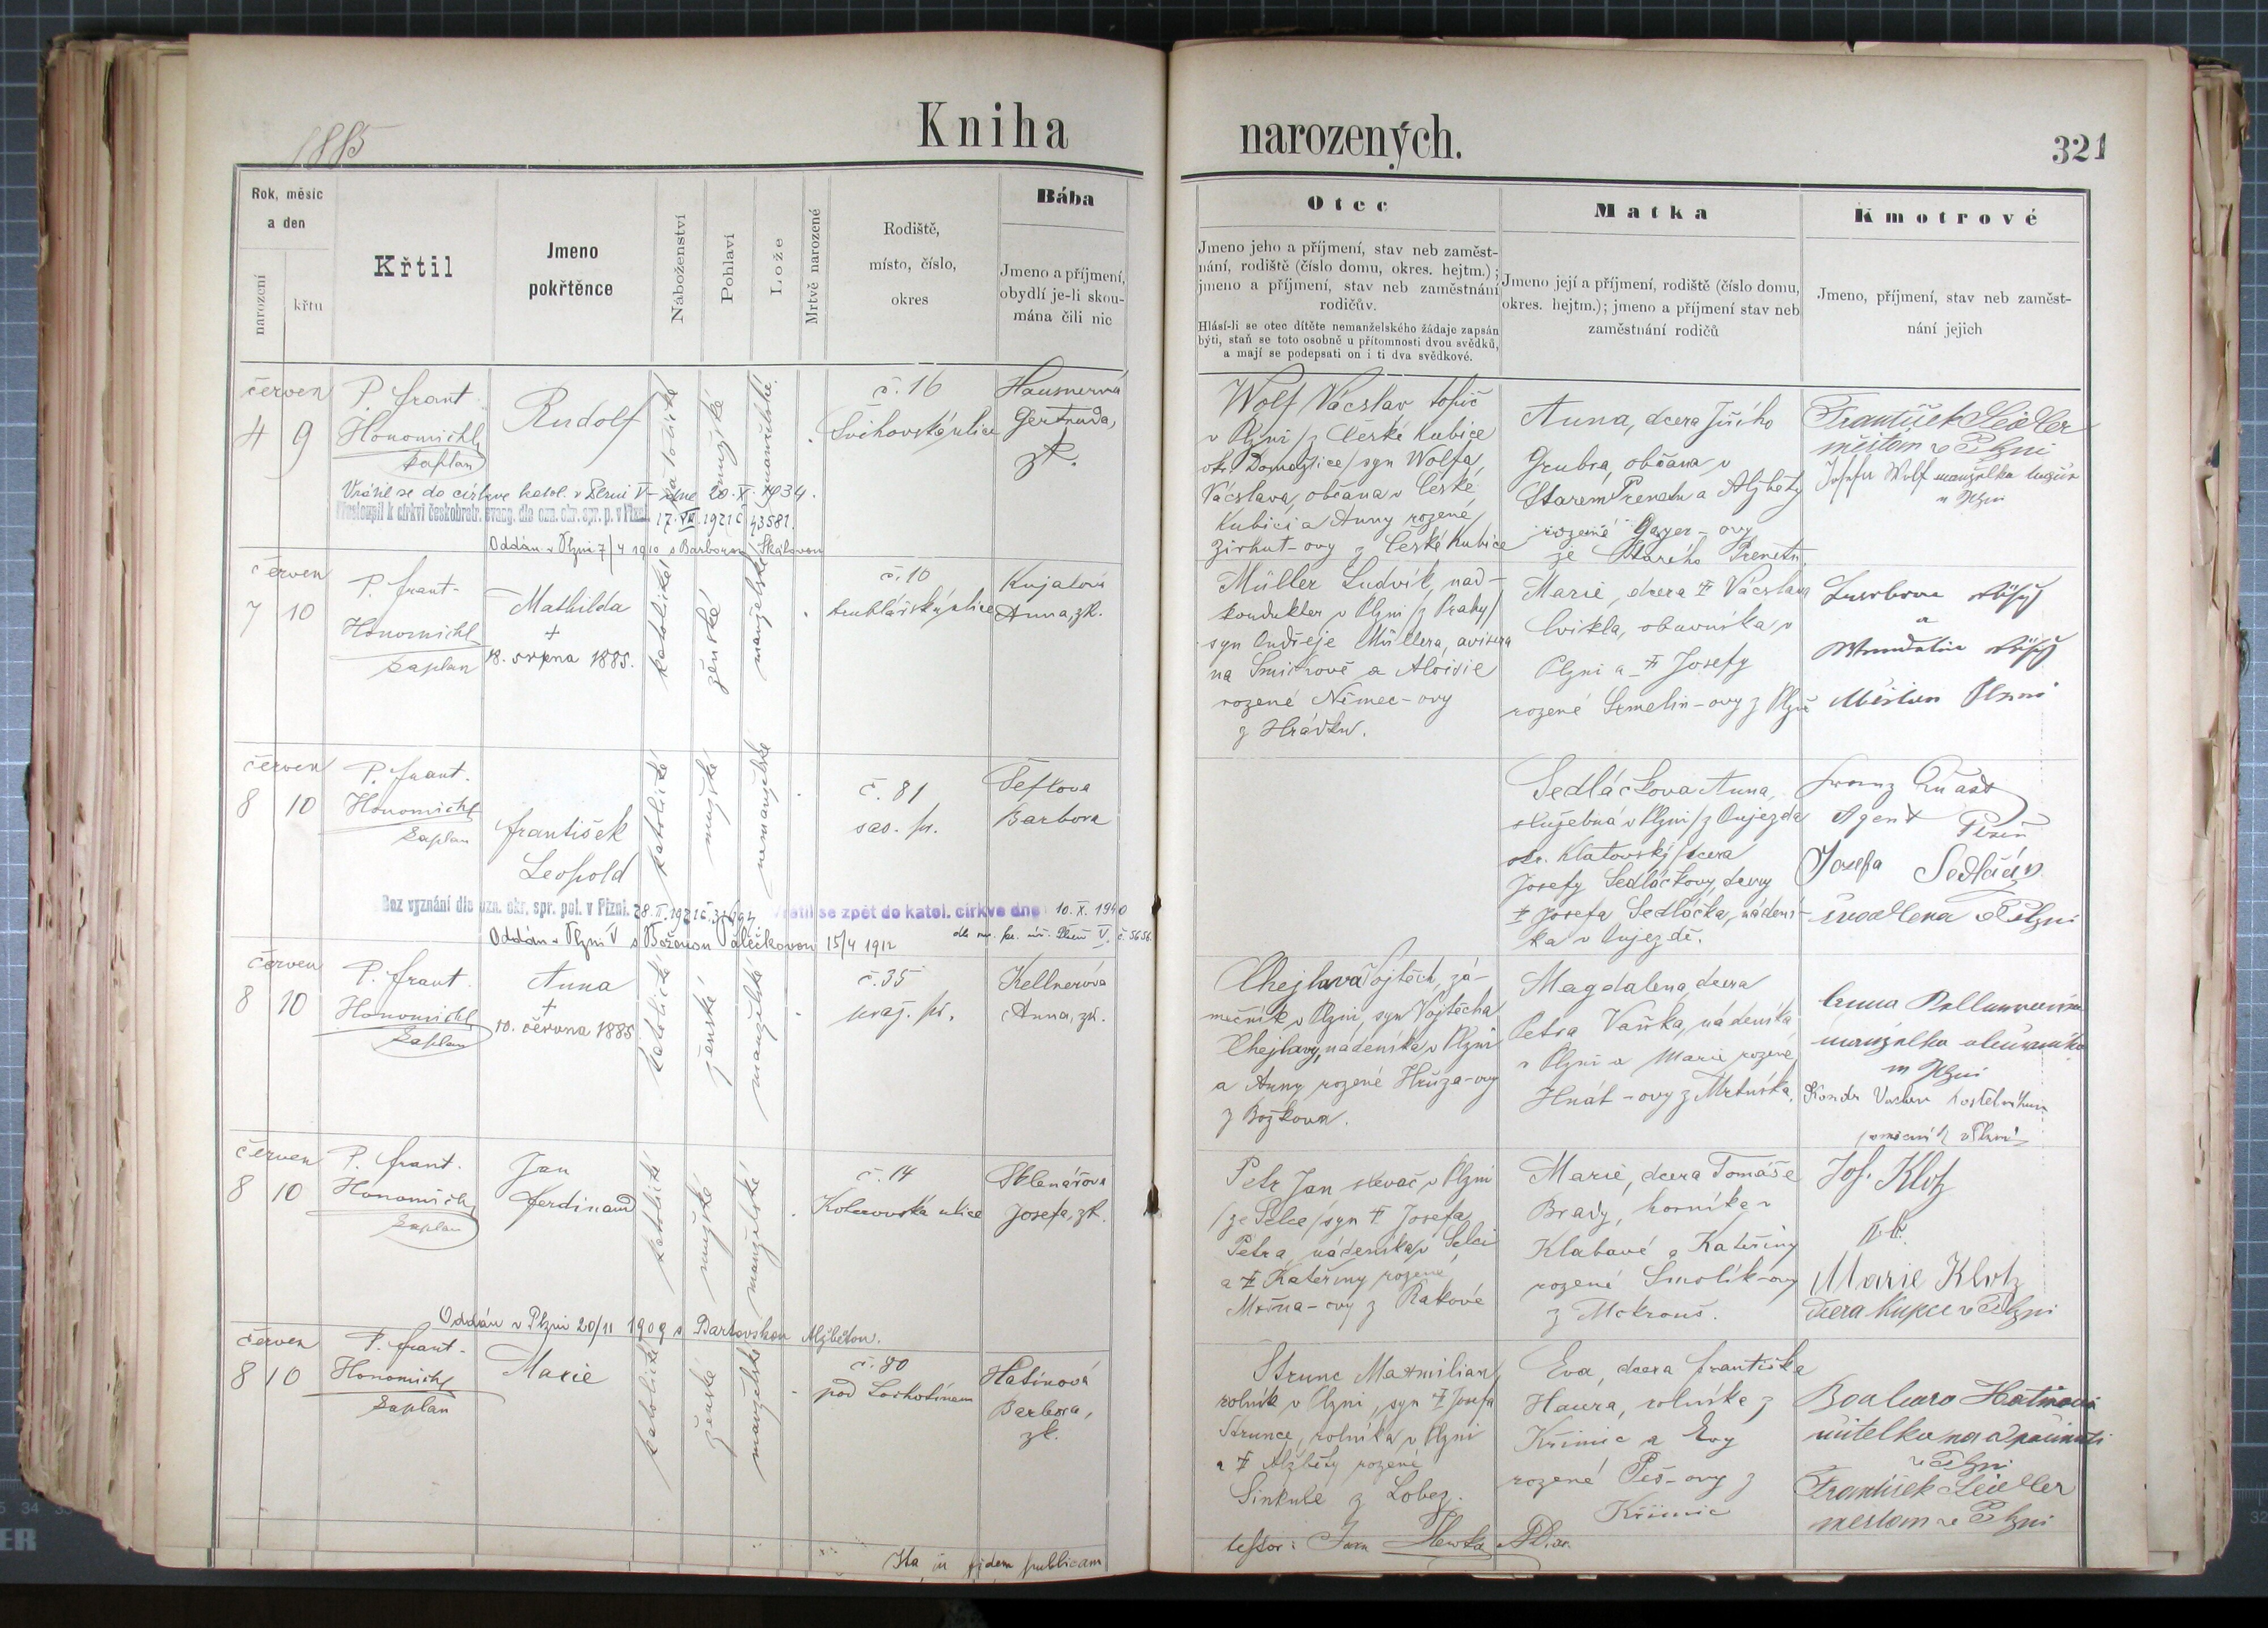 1885
Kniha narozených.
321
Rok, měsíc
a den
narození
křtu
Křtil
Jmeno
pokřtěnce
Náboženství
Pohlaví
Lože
Mrtvě narozené
Rodiště,
místo, číslo,
okres
Bába
Jmeno a příjmení,
obydlí je-li skou-
mána čili nic
Otec
Jmeno jeho a příjmení, stav neb zaměst-
nání, rodiště (číslo domu, okres. hejtm.);
jmeno a příjmení, stav neb zaměstnání
rodičův.
Hlásí-li se otec dítěte nemanželského žádaje zapsán
býti, staň se toto osobně u přítomnosti dvou svědků,
a mají se podepsati on i ti dva svědkové.
Matka
Jmeno její a příjmení, rodiště (číslo domu,
okres. hejtm.); jmeno a příjmení stav neb
zaměstnání rodičů
Kmotrové
Jmeno, příjmení, stav neb zaměst-
nání jejich
červen
4 9
P. Frant.
Honomichl
kaplan
Rudolf
katolické
mužské
manželské
č. 16
Švihovská ulice
Hausnerová
Gertruda,
zk.
Vrátil se do církve katol. v Plzni V dne 20. X. 1934.
Přestoupil k církvi českobratr. evang. dle ozn. okr. spr. p. v Plzni. 17. VII. 1921 č. 43581.
Oddán v Plzni 7/4 1910 s Barborou Skálovou
Wolf Václav topič
v Plzni /z České Kubice
okr. Domažlice/ syn Wolfa,
Václava, občana v České
Kubici a Anny rozené
Zirhut-ovy z České Kubice
Anna, dcera Jiřího
Grubra, občana v
Starém a Alžběty
rozené Gayer-ovy
ze Starého
František Seidler
měštan v Plzni
Josefa Wolf manželka topiče
v Plzni
červen
7 10
P. Frant.
Honomichl
kaplan
Mathilda
+
18. srpna 1885.
katolické
ženské
manželské
č. 10
truhlářská ulice
Kujalová
Anna, zk.
Müller Ludvík, nad-
kondukter v Plzni /z Prahy/
syn Ondřeje Müllera,
na Smíchově a Aloisie
rozené Němec-ovy
z Hrádku.
Marie, dcera † Václava
Cvikla, obuvníka v
Plzni a † Josefy
rozené Semelin-ovy z Plzně
a
Měštan Plzni
červen
8 10
P. Frant.
Honomichl
kaplan
František
Leopold
katolické
mužské
nemanželské
č. 81
sas. př.
Šeflová
Barbora
Bez vyznání dle ozn. okr. spr. pol. v Plzni. 28. II. 1921 č.
Vrátil se zpět do katol. církve dne 10. X. 1940
Plzeň V. č. 5656.
Oddán v Plzni V s Boženou Pálečkovou 15/4 1912
Sedláčková Anna,
služebná v Plzni /z Oujezda
okr. Klatovský/ dcera
Josefy Sedláčkovy, dcery
† Josefa Sedláčka, nádení-
ka v Oujezdě.
Franz Quast
Agent Plzeň
Josefa Sedláčk
v Plzni
červen
8 10
P. Frant.
Honomichl
kaplan
Anna
+
10. června 1885
katolické
ženské
manželské
č. 35
praž. př.
Kellnerová
Anna, zk.
Chejlava Vojtěch, zá-
mečník v Plzni, syn Vojtěcha
Chejlavy, nádeníka v Plzni
a Anny rozené Hrůza-ovy
z Božkova.
Magdalena, dcera
Petra Vaňka, nádeníka
v Plzni a Marie rozené
Hnát-ovy z Mrtníka.
Anna
manželka
v Plzni
Václav
pomocník v Plzni
červen
8 10
P. Frant.
Honomichl
kaplan
Jan
Ferdinand
katolické
mužské
manželské
č. 14
Kolerovská ulice
Sklenářová
Josefa, zk.
Oddán v Plzni 20/11 1909 s Bartovskou Alžbětou.
Petr Jan slevač v Plzni
/ze Selce/ syn † Josefa
Petra, nádeníka v Selci
a † Kateřiny rozené
Mošna-ovy z Rakové
Marie, dcera Tomáše
Brady, horníka v
Klabavé a Kateřiny
rozené Smolík-ovy
z Mokrouš.
Jos. Klotz
Marie Klotz
dcera kupce v Plzni
červen
8 10
P. Frant.
Honomichl
kaplan
Marie
katolické
ženské
manželské
č. 80
pod Lochotínem
Hatinová
Barbora,
zk.
Strunc Maxmilian
rolník v Plzni, syn † Josefa
Strunce, rolníka v Plzni
a † Alžběty rozené
Sinkule z Lobez.
Eva, dcera Františka
Haura, rolníka z
Křimic a Evy
rozené Peš-ovy z
Křimic
Barbara Hatinová
učitelka na
v Plzni
František Seidler
mestam v Plzni
Ita in fidem publicam
testor: Jan